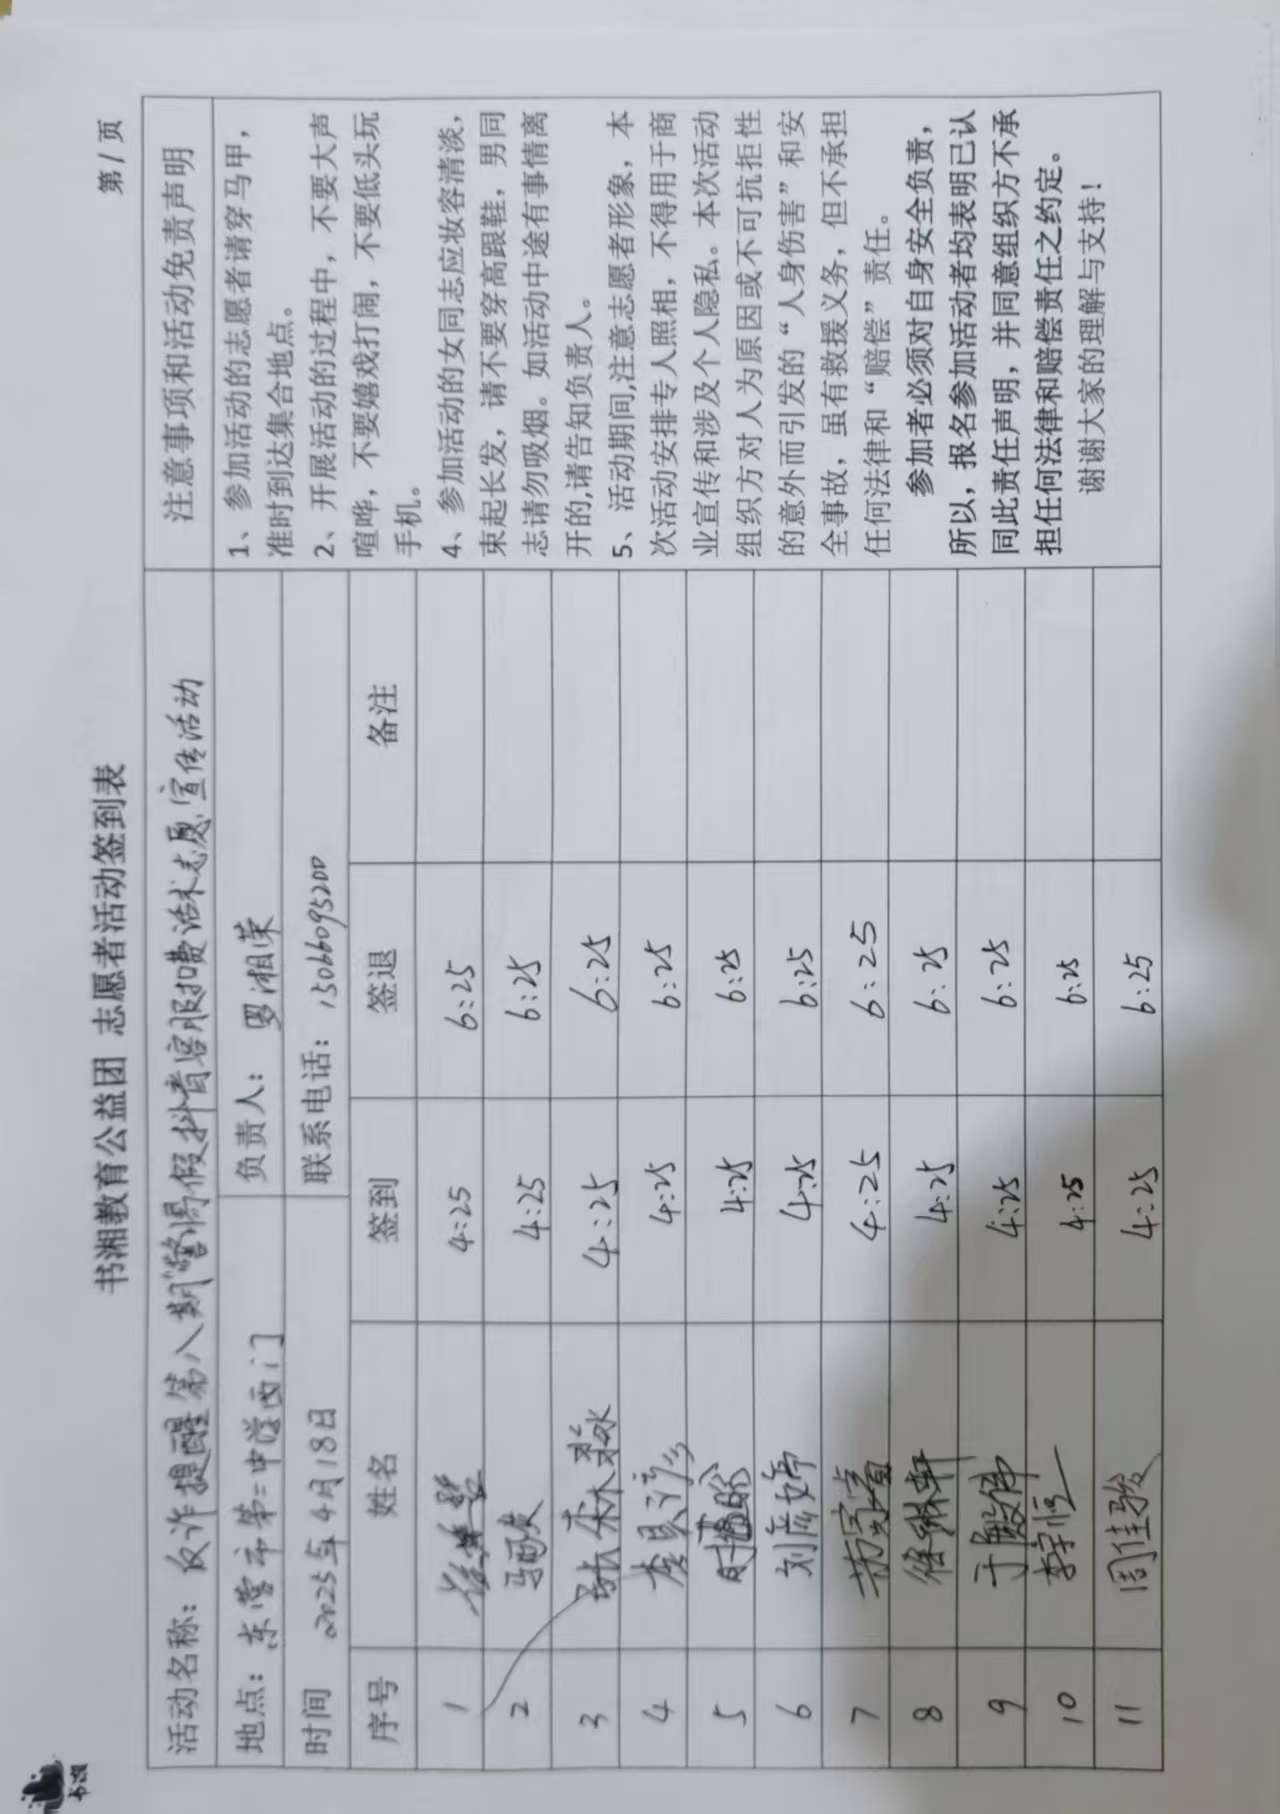 书湘
第1页
书湘教育公益团 志愿者活动签到表
活动名称：反诈提醒第八期"警惕假抖音客服扣费话术志愿宣传活动
地点：东营市第二中学西门
负责人：罗湘荣
时间 2025年4月18日
联系电话：15066095200
序号 姓名 签到 签退 备注
1 4:25 6:25
2 4:25 6:25
3 4:25 6:25
4 4:25 6:25
5 4:25 6:25
6 刘彦婷 4:25 6:25
7 4:25 6:25
8 4:25 6:25
9 4:25 6:25
10 李宇恒 4:25 6:25
11 周佳骏 4:25 6:25
注意事项和活动免责声明
1、参加活动的志愿者请穿马甲，
准时到达集合地点。
2、开展活动的过程中，不要大声
喧哗，不要嬉戏打闹，不要低头玩
手机。
4、参加活动的女同志应妆容清淡，
束起长发，请不要穿高跟鞋，男同
志请勿吸烟。如活动中途有事情离
开的,请告知负责人。
5、活动期间,注意志愿者形象，本
次活动安排专人照相，不得用于商
业宣传和涉及个人隐私。本次活动
组织方对人为原因或不可抗拒性
的意外而引发的“人身伤害”和安
全事故，虽有救援义务，但不承担
任何法律和“赔偿”责任。
参加者必须对自身安全负责，
所以，报名参加活动者均表明已认
同此责任声明，并同意组织方不承
担任何法律和赔偿责任之约定。
谢谢大家的理解与支持！